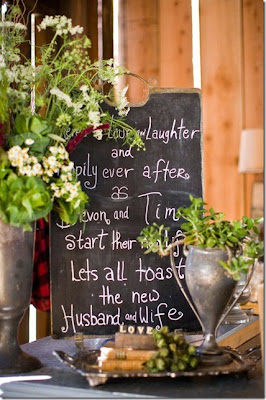 Love and Laughter
and
happily ever after.
as
Devon and Tim
start their new life
Lets all toast
the new
Husband and Wife
LOVE